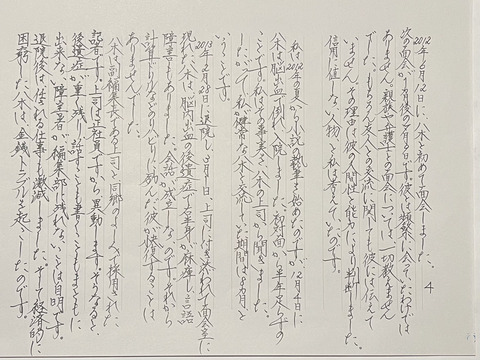 4
2012年6月12日に、八木と初めて面会しました。
次の面会が1ヵ月後の7月8日です。彼とは頻繁に会ってたわけでは
ありません。親族や弁護士との面会については、一切教えません
でした。もちろん友人との交流に関しても彼には伝えて
いません。その理由は彼の人間性と能力により判断しました。
信用に値しない人物と私は考えていたのです。
私は2012年の夏から小説の執筆を始めたのですが、12月4日に
八木は脳出血で倒れ入院しました。初対面から半年足らずの
ことです。私はその事実を八木の上司から聞きました。
したがって私が健常な八木と交流していた期間は6ヵ月と
いうことです。
2013年2月28日に退院し、3月1日、上司に付き添われて面会室に
現れた八木は、脳内出血の後遺症で右半身が麻痺し、言語
障害もありました。会話が成立しないのです。それから
計算すればリハビリに励んだ彼が恢復することは
ありませんでした。
八木は副編集長である上司と同郷のよしみで採用された
記者です。上司は正社員ですから異動します。そうなると、
後遺症が重く残り、話すことも書くこともまともに
出来ない障害者が編集部に残れないことは自明です。
退院後は任される仕事も激減しました。そして経済的に
困窮した八木は、金銭トラブルを起こしたのです。